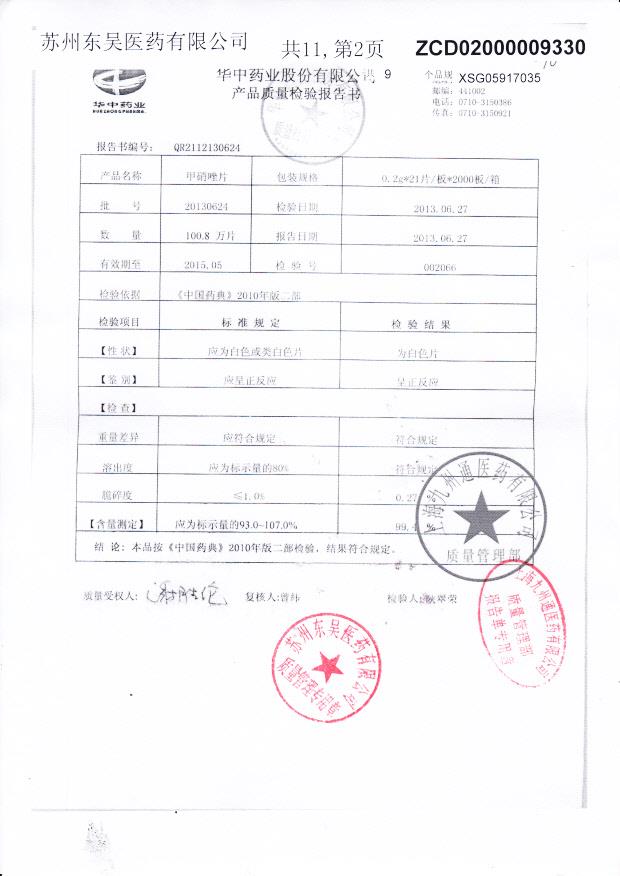 苏州东吴医药有限公司 共11,第2页 ZCD02000009330
华中药业股份有限公司 9 XSG05917035
华中药业
HUAZHONG PHARMA.
产品质量检验报告书
邮编: 441002
电话: 0710-3150386
传真: 0710-3150921
报告书编号: QR2112130624
产品名称 甲硝唑片 包装规格 0.2g*21片/板*2000板/箱
批 号 20130624 检验日期 2013.06.27
数 量 100.8 万片 报告日期 2013.06.27
有效期至 2015.05 检 验 号 002066
检验依据 《中国药典》2010年版二部
检验项目 标 准 规 定 检 验 结 果
【性 状】 应为白色或类白色片 为白色片
【鉴 别】 应呈正反应 呈正反应
【检 查】
重量差异 应符合规定 符合规定
溶出度 应为标示量的80% 符合规定
脆碎度 ≤1.0% 0.27
【含量测定】 应为标示量的93.0~107.0% 99. %
结 论: 本品按《中国药典》2010年版二部检验, 结果符合规定。
质量受权人: 复核人:曾纬 检验人: 翠荣
上海九州通医药有限公司
质量管理部
上海九州通医药有限公司
质量管理部
报告单专用章
苏州东吴医药有限公司
质量管理专用章